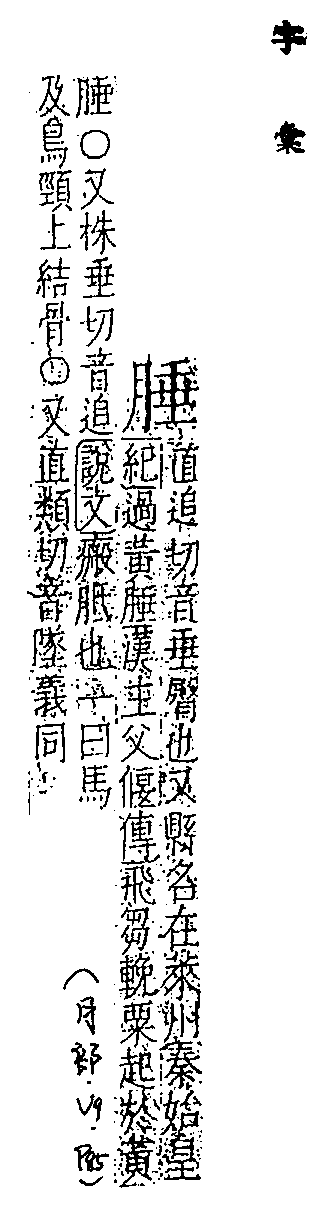 字彙
腄直追切音垂臀也又縣名在萊州秦始皇
紀過黃腄漢主父偃傳飛芻輓粟起於黃
腄○又株垂切音追說文瘢胝也一曰馬
及鳥頸上結骨○又直類切音墜義同
(月部·V9·P85)